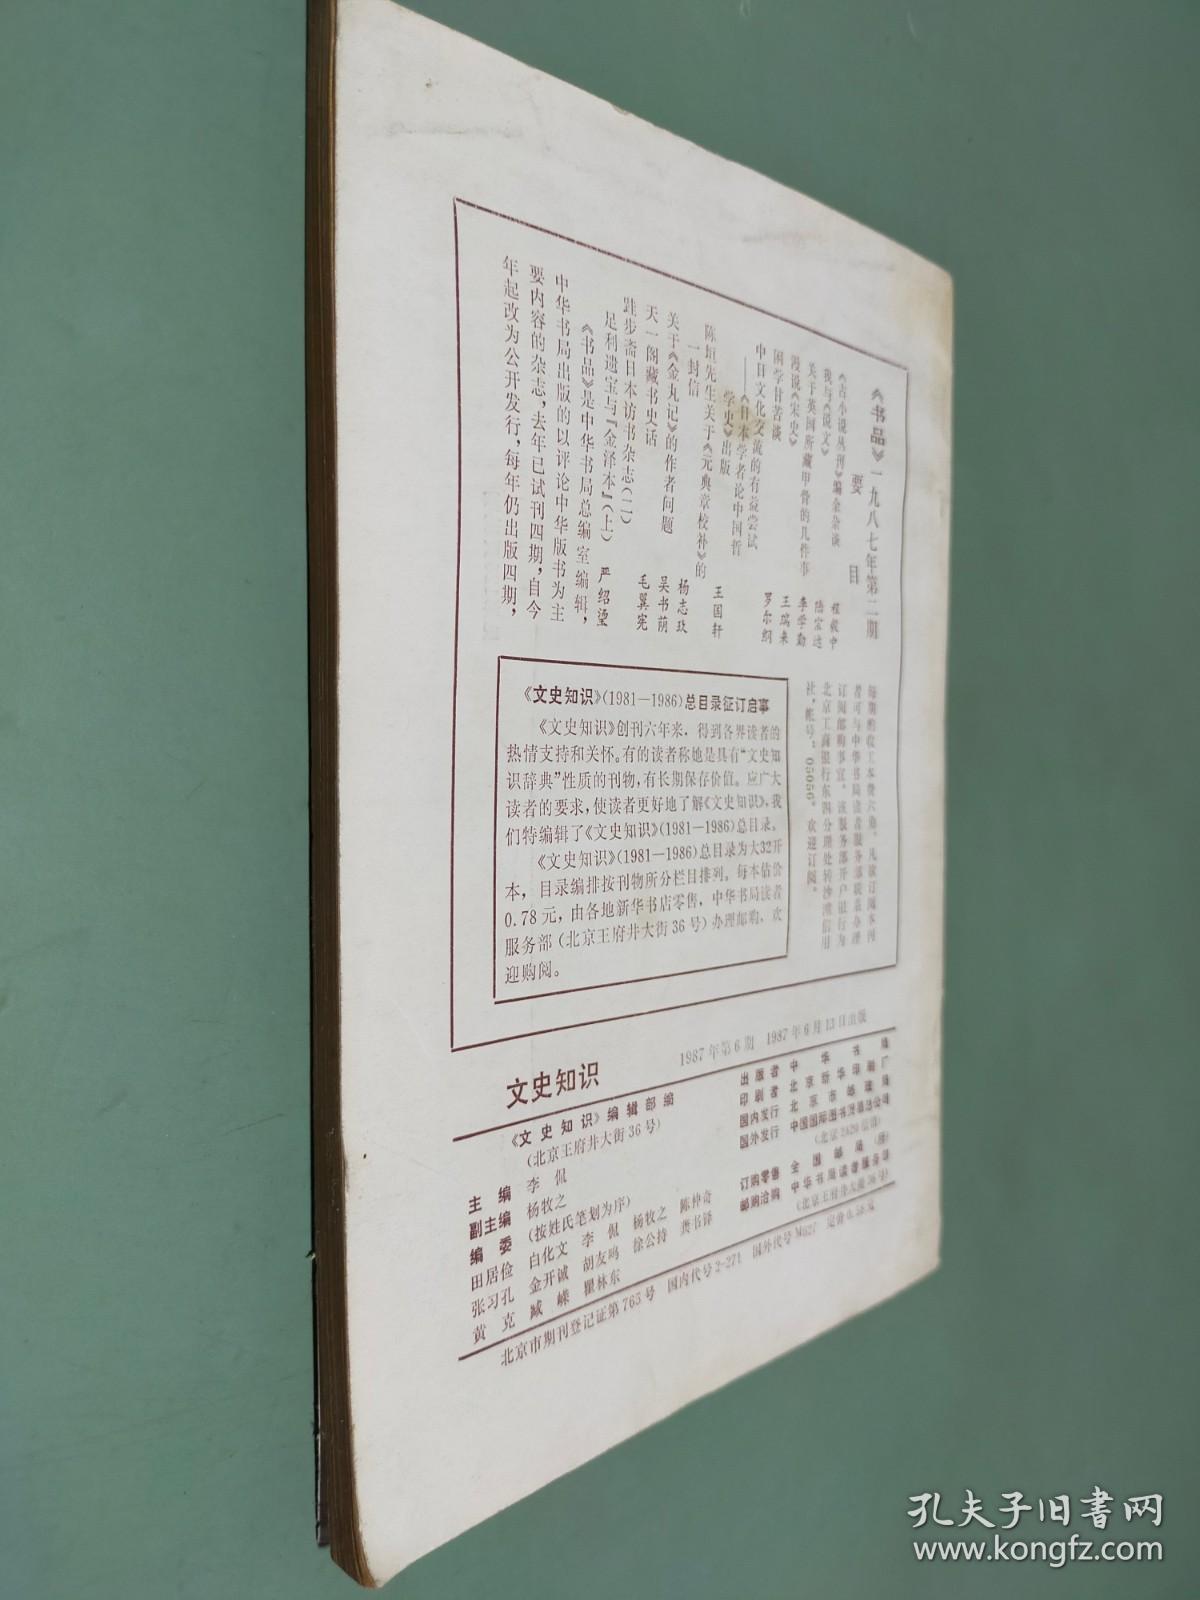 《书品》一九八七年第二期
要目
《古小说丛刊》编余杂谈 程毅中
我与《说文》 陆宗达
关于英国所藏甲骨的几件事 李学勤
漫说《宋史》 王瑞来
困学甘苦谈 罗尔纲
中日文化交流的有益尝试
——《日本学者论中国哲
学史》出版 王国轩
陈垣先生关于《元典章校补》的
一封信
关于《金丸记》的作者问题 杨志玖
天一阁藏书史话 吴书荫
跬步斋日本访书杂志(二) 毛翼宪
足利遗宝与『金泽本』(上) 严绍璗
《书品》是中华书局总编室编辑，
中华书局出版的以评论中华版书为主
要内容的杂志，去年已试刊四期，自今
年起改为公开发行，每年仍出版四期，
每期酌收工本费六角。凡欲订阅本刊
者可与中华书局读者服务部联系办理
订阅邮购事宜。该服务部开户银行为
北京工商银行东四分理处转沙滩信用
社，帐号：05056。欢迎订阅。
《文史知识》(1981—1986)总目录征订启事
《文史知识》创刊六年来，得到各界读者的
热情支持和关怀。有的读者称她是具有“文史知
识辞典”性质的刊物，有长期保存价值。应广大
读者的要求，使读者更好地了解《文史知识》，我
们特编辑了《文史知识》(1981—1986)总目录。
《文史知识》(1981—1986)总目录为大32开
本，目录编排按刊物所分栏目排列。每本估价
0.78元，由各地新华书店零售，中华书局读者
服务部(北京王府井大街36号)办理邮购，欢
迎购阅。
文史知识
1987年第6期 1987年6月13日出版
《文史知识》编辑部编
(北京王府井大街36号)
主编 李侃
副主编 杨牧之
编委 (按姓氏笔划为序)
田居俭 白化文 李侃 杨牧之 陈仲奇
张习孔 金开诚 胡友鸣 徐公持 龚书铎
黄克 臧嵘 瞿林东
出版者 中华书局
印刷者 北京新华印刷厂
国内发行 北京市邮政局
国外发行 中国国际图书贸易总公司
(北京2820信箱)
订购零售 全国邮局(所)
邮购洽购 中华书局读者服务部
(北京王府井大街36号)
北京市期刊登记证第765号 国内代号2-271 国外代号M627 定价0.58元
孔夫子旧书网
www.kongfz.com